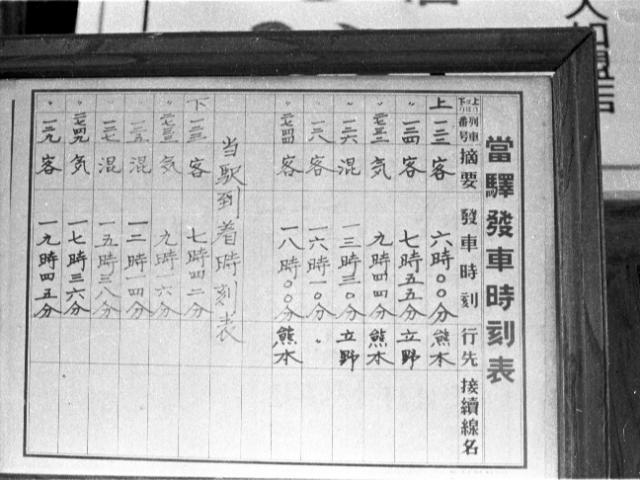 當驛發車時刻表
上リ下リ列車番号 摘要 發車時刻 行先 接續線名
上 一三二 客 六時〇〇分 熊本
〃 一三四 客 七時五五分 立野
〃 気 九時四四分 熊本
〃 一三六 混 一三時三〇分 立野
〃 一三八 客 一六時一〇分 〃
〃 客 一八時〇〇分 熊本
当駅到着時刻表
下 客 七時四二分
〃 気 九時六分
〃 混 一二時一四分
〃 一二七 混 一五時三八分
〃 気 一七時三六分
〃 一二九 客 一九時四五分
加盟店